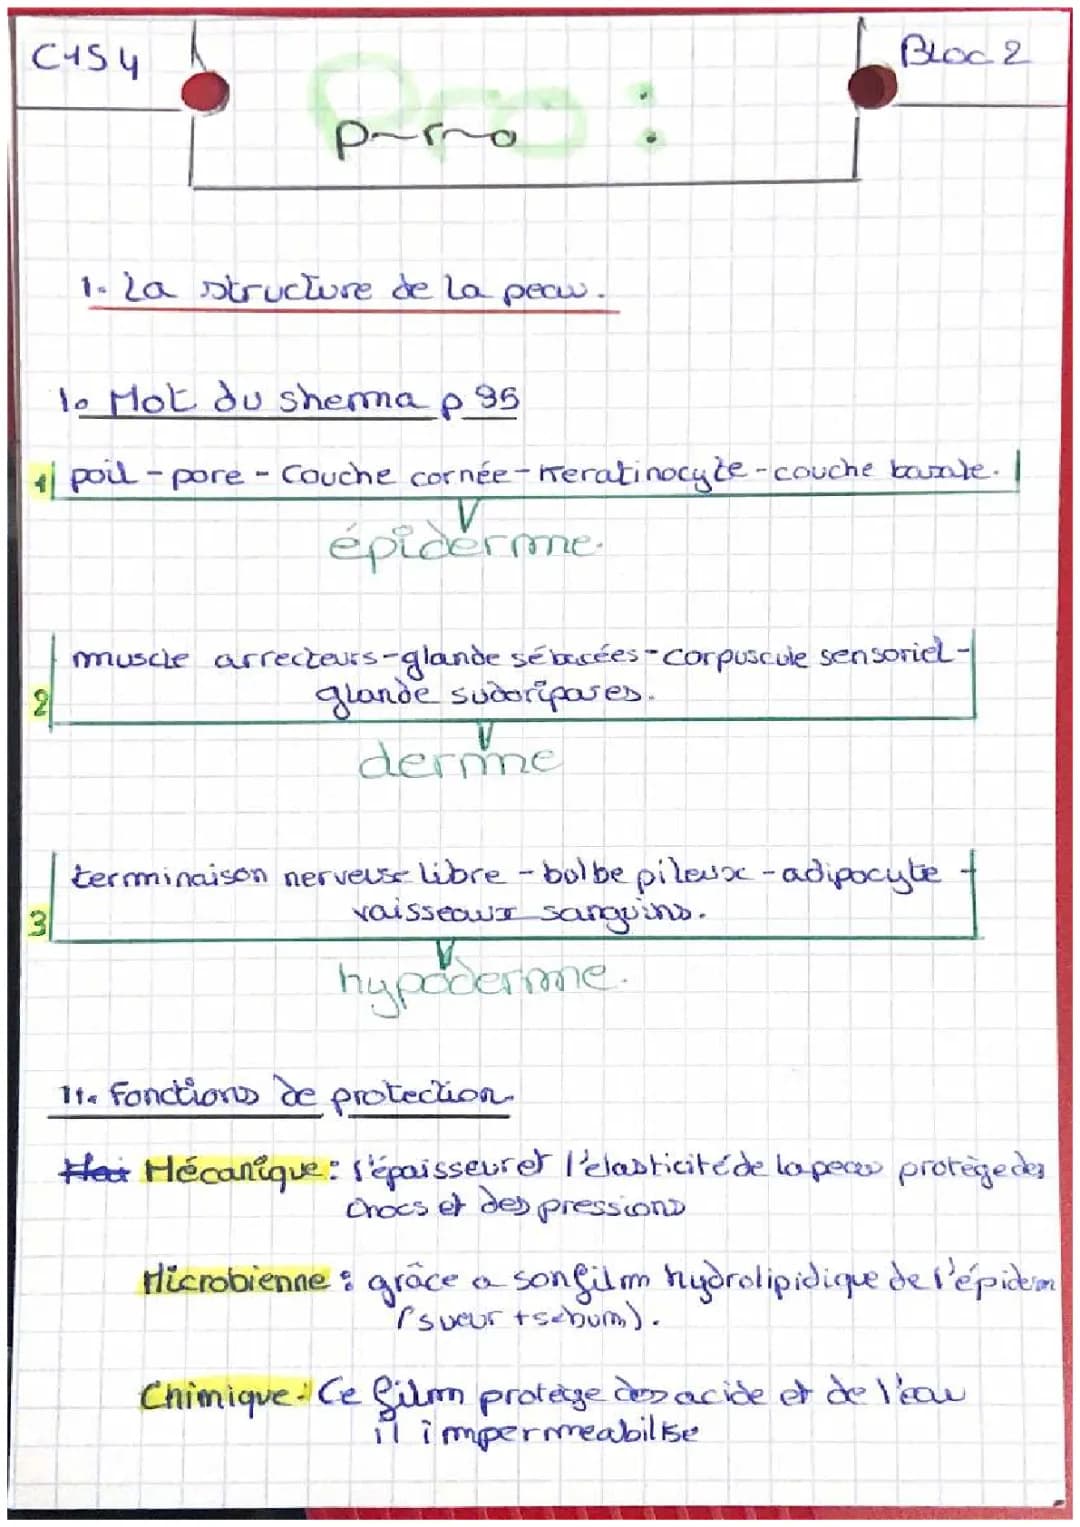 C1S4
Bloc 2
Pro :
p~r~o
1. La structure de la peau.
1. Mot du shema p 95
1 poil - pore - Couche cornée - Keratinocyte - couche basale.
épiderme.
muscle arrecteurs - glande sébacées - corpuscule sensoriel -
2 glande sudoripares.
derme
terminaison nerveuse libre - bulbe pileux - adipocyte -
3 vaisseaux sanguins.
hypoderme.
11. Fonctions de protection.
Mécanique : l'épaisseur et l'élasticité de la peau protège des
chocs et des pressions
Microbienne : grâce a son film hydrolipidique de l'épiderm
(sueur + sebum).
Chimique : Ce film protège des acide et de l'eau
il impermeabilise